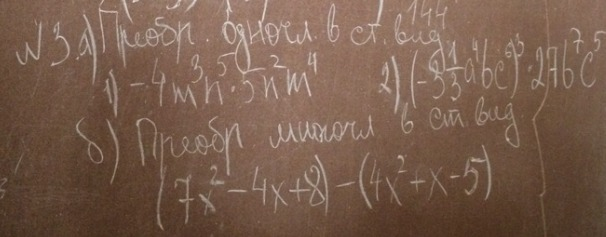 144
№3. а) Преобр. одночл. в ст. вид
1) -4m³n⁵·5n²m⁴ 2) (-3⅓a⁴bc⁹)³·27b⁷c⁵
б) Преобр многочл в ст. вид.
(7x²-4x+8)-(4x²+x-5)